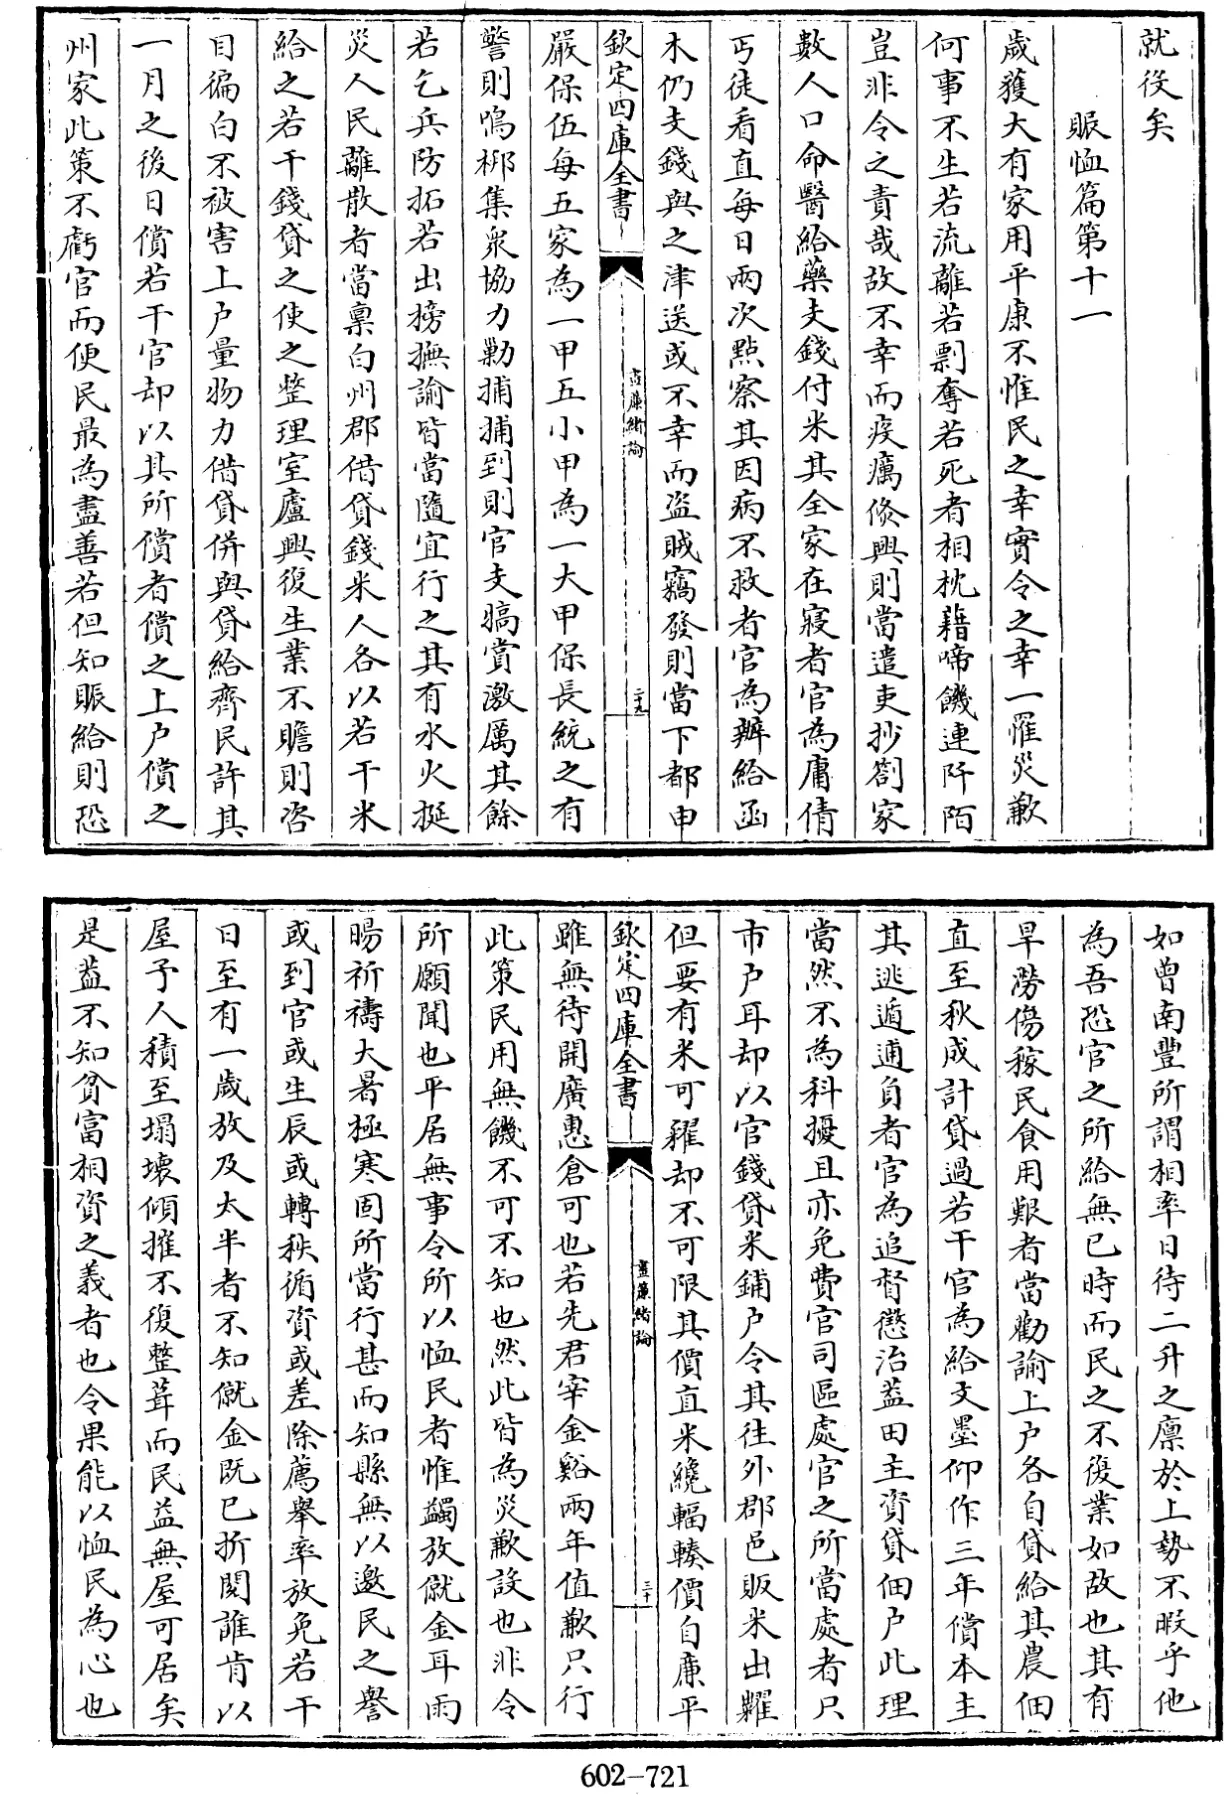 就役矣
賑恤篇第十一
歲獲大有家用平康不惟民之幸實令之幸一罹災歉
何事不生若流離若剽奪若死者相枕藉啼饑連阡陌
豈非令之責哉故不幸而疫癘倐興則當遣吏抄劄家
數人口命醫給藥支錢付米其全家在寢者官為庸倩
丐徒看直每日兩次㸃察其因病不救者官為辦給函
木仍支錢與之津送或不幸而盜賊竊發則當下都申
欽定四庫全書
晝簾緒論
二十九
嚴保伍每五家為一甲五小甲為一大甲保長統之有
警則鳴梆集衆協力勦捕捕到則官支犒賞激厲其餘
若乞兵防拓若出榜撫諭皆當隨宜行之其有水火挻
災人民離散者當稟白州郡借貸錢米人各以若干米
給之若干錢貸之使之整理室廬興復生業不贍則咨
目徧白不被害上户量物力借貸併與貸給齊民許其
一月之後日償若干官却以其所償者償之上户償之
州家此策不虧官而便民最為盡善若但知賑給則恐
如曾南豐所謂相率日待二升之廪於上勢不暇乎他
為吾恐官之所給無已時而民之不復業如故也其有
旱澇傷稼民食用艱者當勸諭上户各自貸給其農佃
直至秋成計貸過若干官為給文墨仰作三年償本主
其逃遁逋負者官為追督懲治葢田主資貸佃户此理
當然不為科擾且亦免費官司區處官之所當處者只
市户耳却以官錢貸米鋪户令其往外郡邑販米出糶
但要有米可糴却不可限其價直米纔輻輳價自廉平
欽定四庫全書
晝簾緒論
三十
雖無待開廣惠倉可也若先君宰金谿兩年值歉只行
此策民用無饑不可不知也然此皆為災歉設也非令
所願聞也平居無事令所以恤民者惟蠲放僦金耳雨
暘祈禱大暑極寒固所當行甚而知縣無以邀民之譽
或到官或生辰或轉秩循資或差除薦舉率放免若干
日至有一歲放及太半者不知僦金既已折閱誰肯以
屋予人積至塌壞傾摧不復整葺而民益無屋可居矣
是葢不知貧富相資之義者也令果能以恤民為心也
602-721